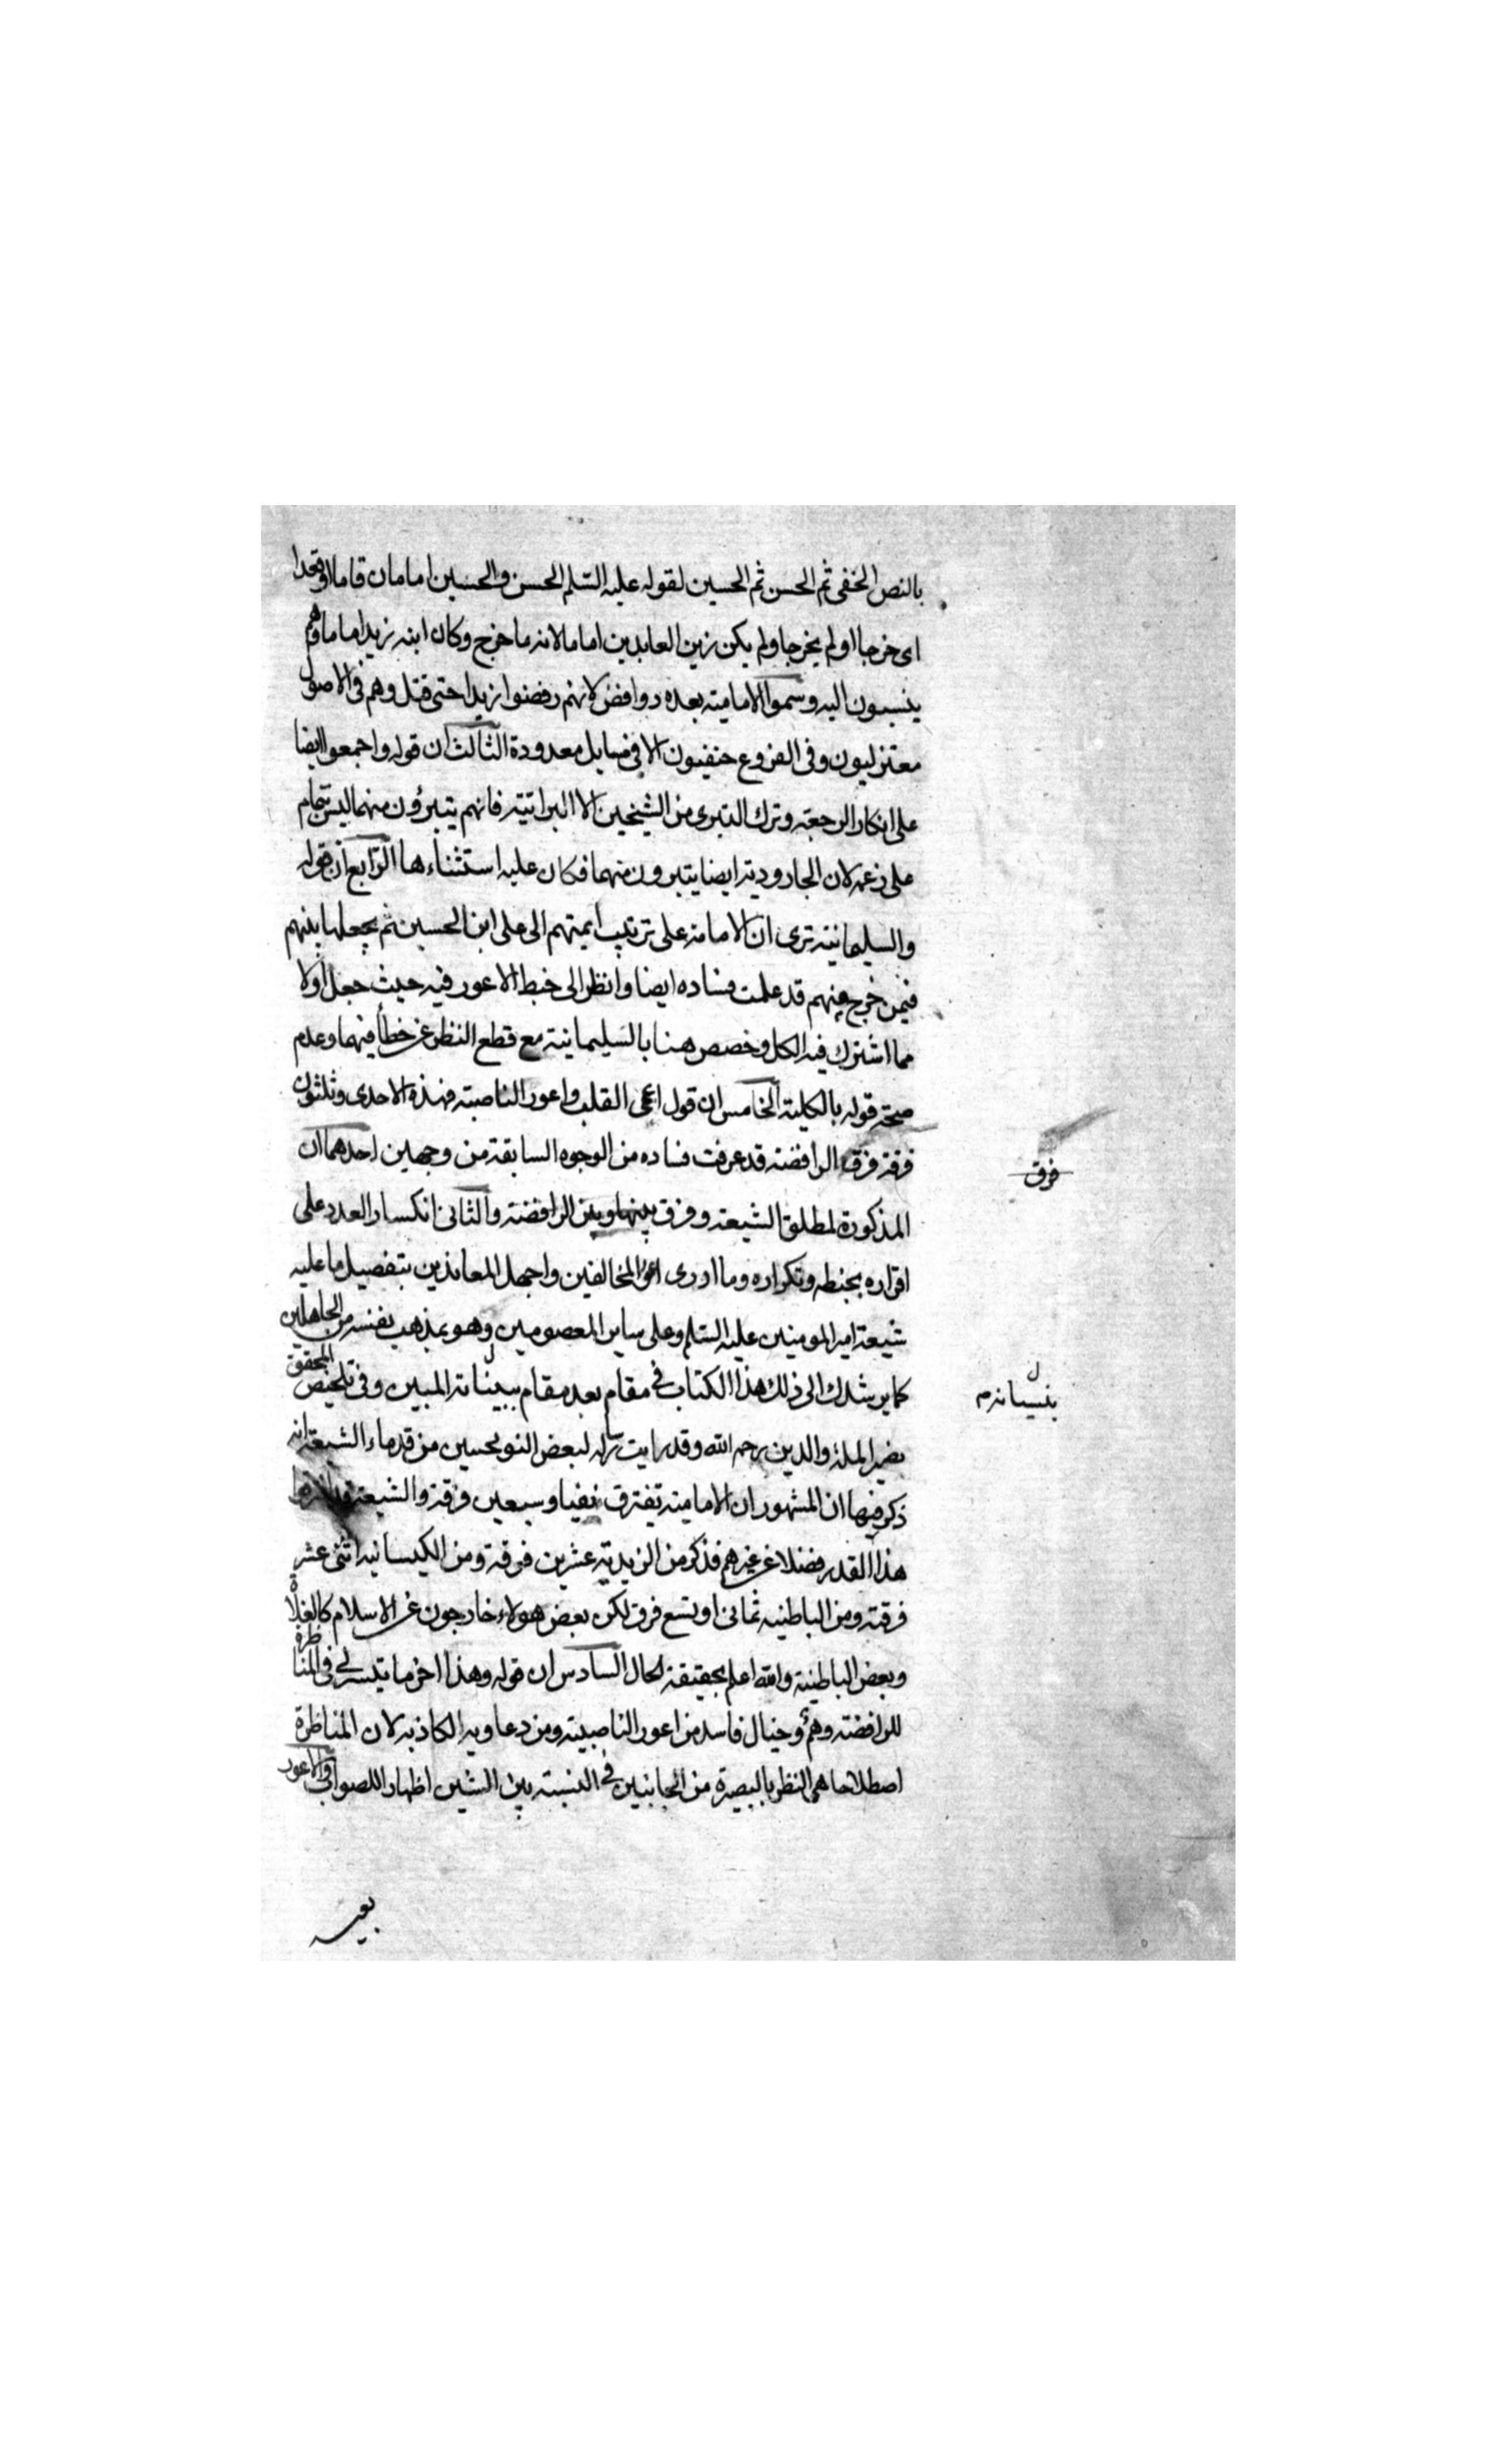 بالنص الخفى ثم الحسن ثم الحسين لقوله عليه السلم الحسن والحسين امامان قاما او قعدا
اى خرجا او لم يخرجا ولم يكن زين العابدين اماما لانه ما خرج وكان ابنه زيد اماما وهم
ينسبون اليه وسموا الامامية بعده روافض لانهم رفضوا زيدا حتى قتل وهم فى الاصول
معتزليون وفى الفروع حنفيون الا فى مسايل معدودة الثالث ان قوله واجمعوا ايضا
على انكار الرجعة وترك التبرى من الشيخين الا البراتية فانهم يتبرؤن منهما ليس بتمام
على زعمه لان الجارودية ايضا يتبرون منهما فكان عليه استثناءها الرابع ان قوله
والسليمانية ترى ان الامامة على ترتيب ايمتهم الى على ابن الحسين ثم يجعلها بينهم
فيمن خرج منهم قد علمت فساده ايضا وانظر الى خبط الاعور فيه حيث جعل اولا
مما اشترك فيه الكل وخصص هنا بالسليمانية مع قطع النظر عن خطأ فيهما وعدم
صحة قوله بالكلية الخامس ان قول اعمى القلب واعور الناصبة فهذه الاحدى وثلثون
فرقة فرق الرافضة قد عرفت فساده من الوجوه السابقة من وجهين احدهما ان
فرق
المذكورة لمطلق الشيعة وفرق بينها وبين الرافضة والثانى انكسار العدد على
اقراره بخبطه وتكراره وما ادرى اعور المخالفين واجهل المعاندين بتفصيل ما عليه
شيعة امير المومنين عليه السلم وعلى ساير المعصومين وهو بمذهب نفسه من الجاهلين
كما يرشدك الى ذلك هذا الكتاب فى مقام بعد مقام ببيناته المبين وفى تلخيص المحقق
نصير الملة والدين رحمه الله وقد رايت رسالة لبعض النوبختيين من قدماء الشيعة انه
ذكر فيها ان المشهور ان الامامية تفترق نيفا وسبعين فرقة والشيعة
هذا القدر فضلا عن غيرهم فذكر من الزيدية عشرين فرقة ومن الكيسانية اثنى عشر
فرقة ومن الباطنية ثمانى او تسع فرق لكن بعض هولاء خارجون عن الاسلام كالغلاة
وبعض الباطنية والله اعلم بحقيقة الحال السادس ان قوله وهذا اخر ما تيسر لى فى المناظرة
للرافضة وهم وخيال فاسد من اعور الناصبية ومن دعاويه الكاذبة لان المناظرة
اصطلاحا هى النظر بالبصيرة من الجانبين فى النسبة بين الشيئين اظهارا للصواب والاعور